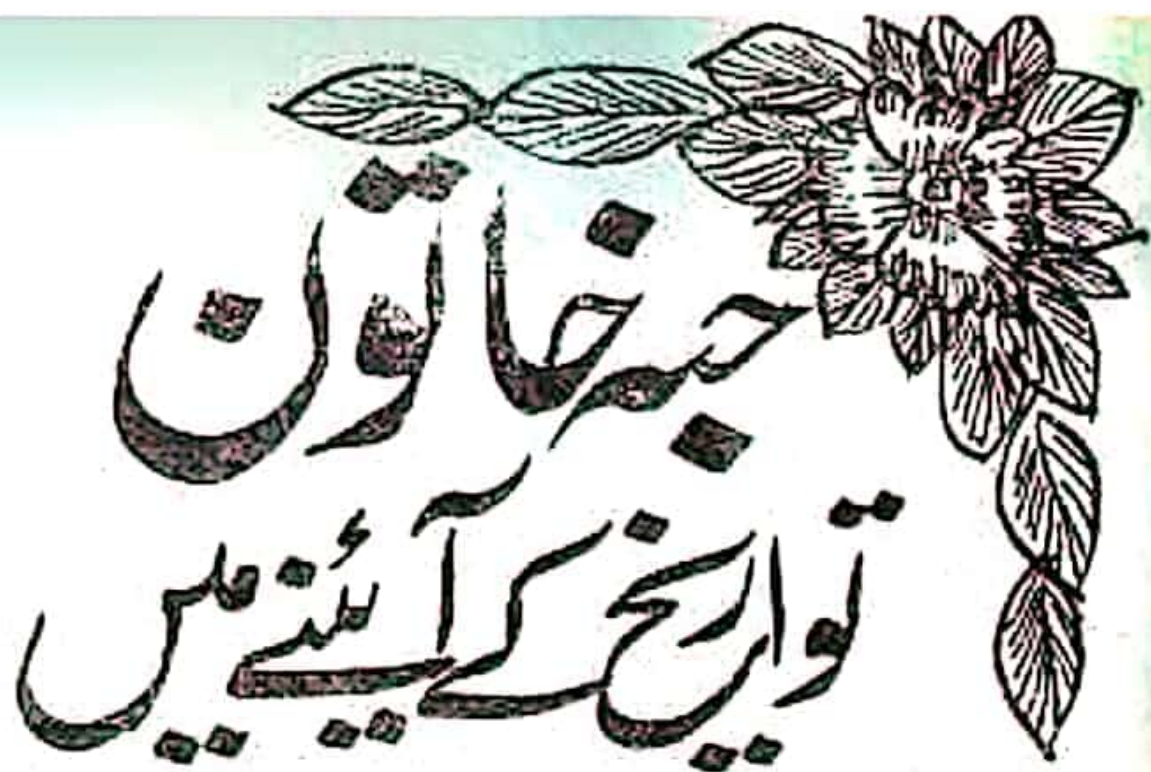 حبہ خاتون
تواریخ کے آیئنے میں